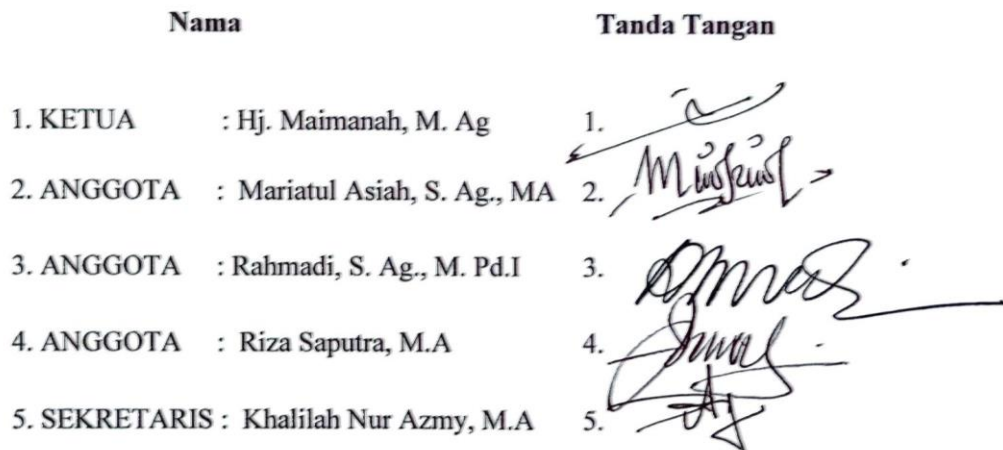 Nama Tanda Tangan
1. KETUA : Hj. Maimanah, M. Ag 1.
2. ANGGOTA : Mariatul Asiah, S. Ag., MA 2.
3. ANGGOTA : Rahmadi, S. Ag., M. Pd.I 3.
4. ANGGOTA : Riza Saputra, M.A 4.
5. SEKRETARIS : Khalilah Nur Azmy, M.A 5.